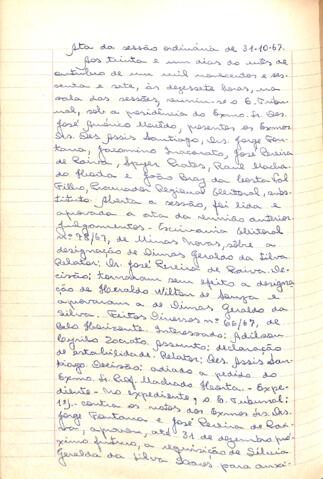 Ata da sessão ordinária de 31-10-67.
Aos trinta e um dias do mês de
outubro de um mil novecentos e ses-
senta e sete, às dezessete horas, na
sala das sessões, reuniu-se o E. Tribu-
nal, sob a presidência do Exmo. Sr. Des.
José Américo Macêdo, presentes os Exmos
Srs. Des. Assis Santiago, Drs. Jorge Fon-
tana, Jacomino Inacarato, José Pereira
de Paiva, Spyer Prates, Raul Macha-
do Horta e João Braz da Costa Val
Filho, Procurador Regional Eleitoral, subs-
tituto. Aberta a sessão, foi lida e
aprovada a ata da reunião anterior.
Julgamentos - Escrivania eleitoral
nº 78/67, de Minas Novas, sôbre a
designação de Dimas Geraldo da Silva
Relator: Dr. José Pereira de Paiva. De-
cisão: tornaram sem efeito a designa-
ção de Heraldo Wilton de Souza e
aprovaram a de Dimas Geraldo da
Silva. - Feitos Diversos nº 66/67, de
Belo Horizonte. Interessado: Adilson
Assunto: declaração
de estabilidade. Relator: Des. Assis San-
tiago. Decisão: adiado a pedido do
Exmo. Sr. Prof. Machado Horta. - Expe-
diente - No expediente, o E. Tribunal:
1º)- contra os votos dos Exmos Srs. Drs.
Jorge Fontana e José Pereira de Pai-
va, aprovou, até 31 de dezembro pró-
ximo futuro, a requisição de Silvia
Geralda da Silva Soares para auxi-